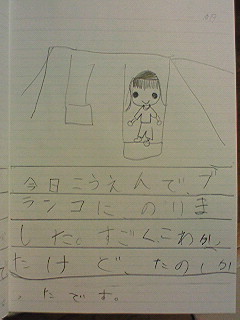 今日こうえんで、ブ
ランコに のりま
した。すごくこわか
たけど、たのしか
たです。